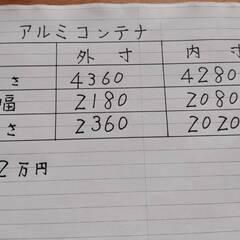 アルミコンテナ
外寸 内寸
さ 4360 4280
幅 2180 2080
さ 2360 2020
2万円